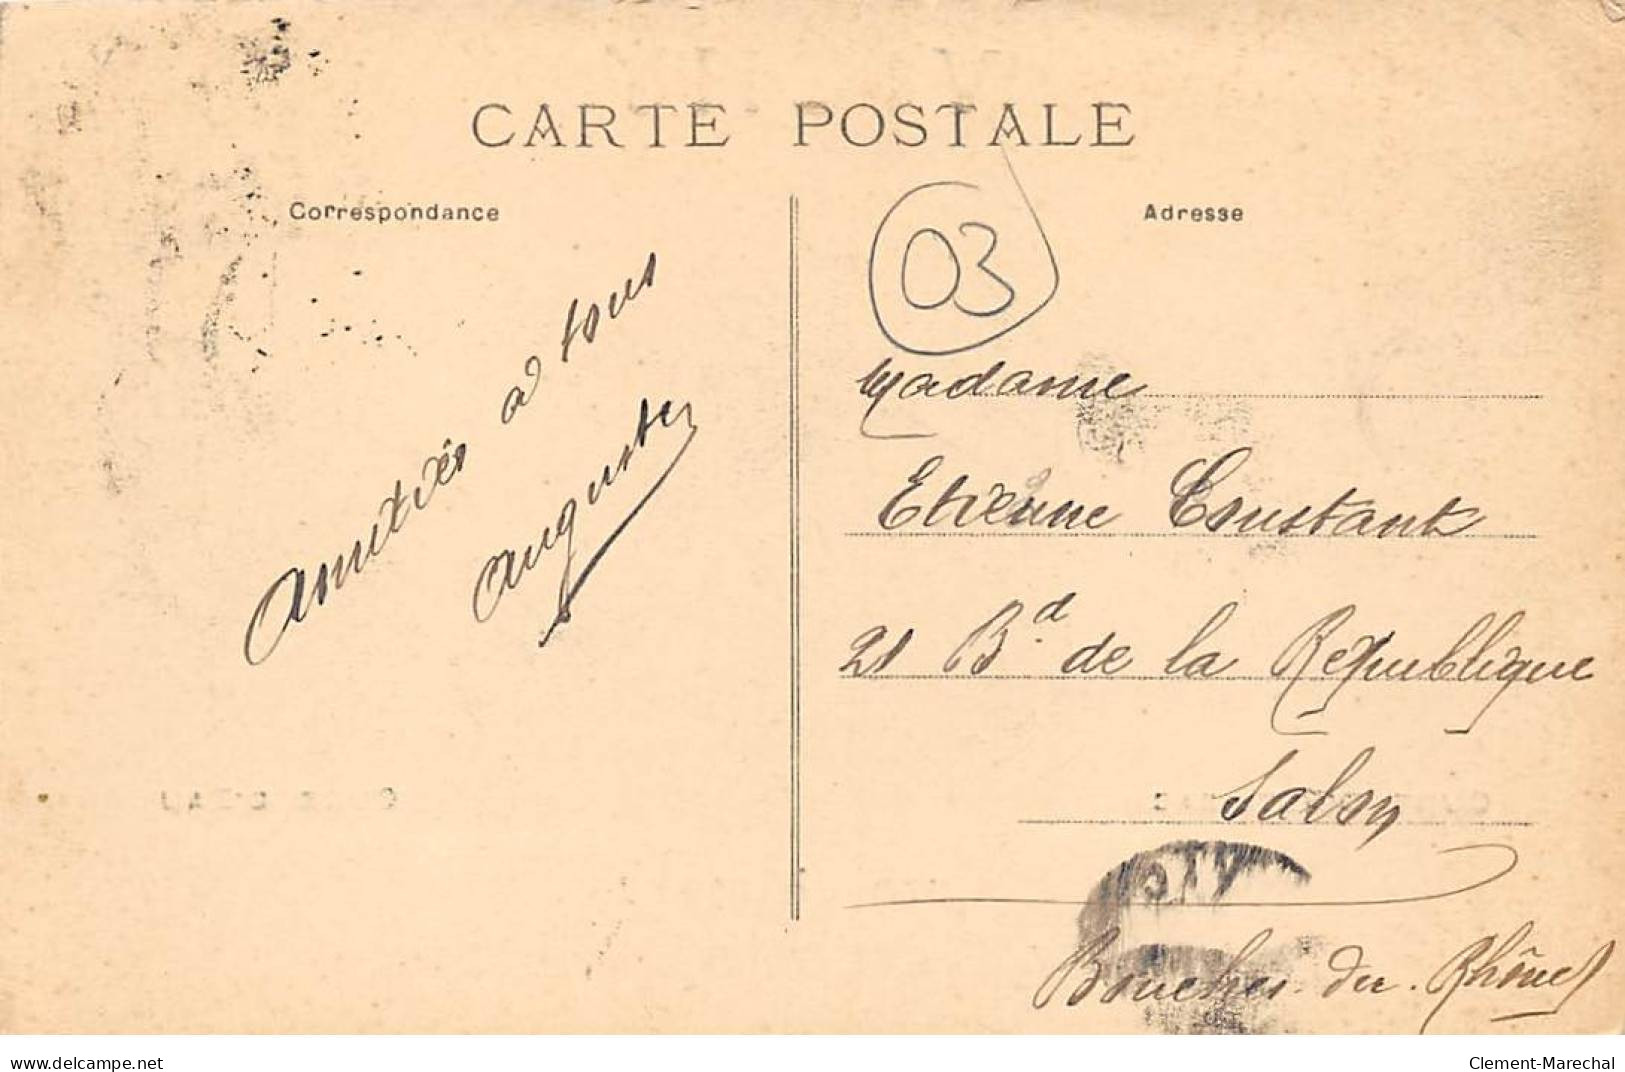 CARTE POSTALE
Correspondance
Adresse
03
Amitiés à tous
Madame
Etienne Constant
21 Bd de la République
Salon
Bouches-du-Rhône
www.delcampe.net
Clement-Marechal